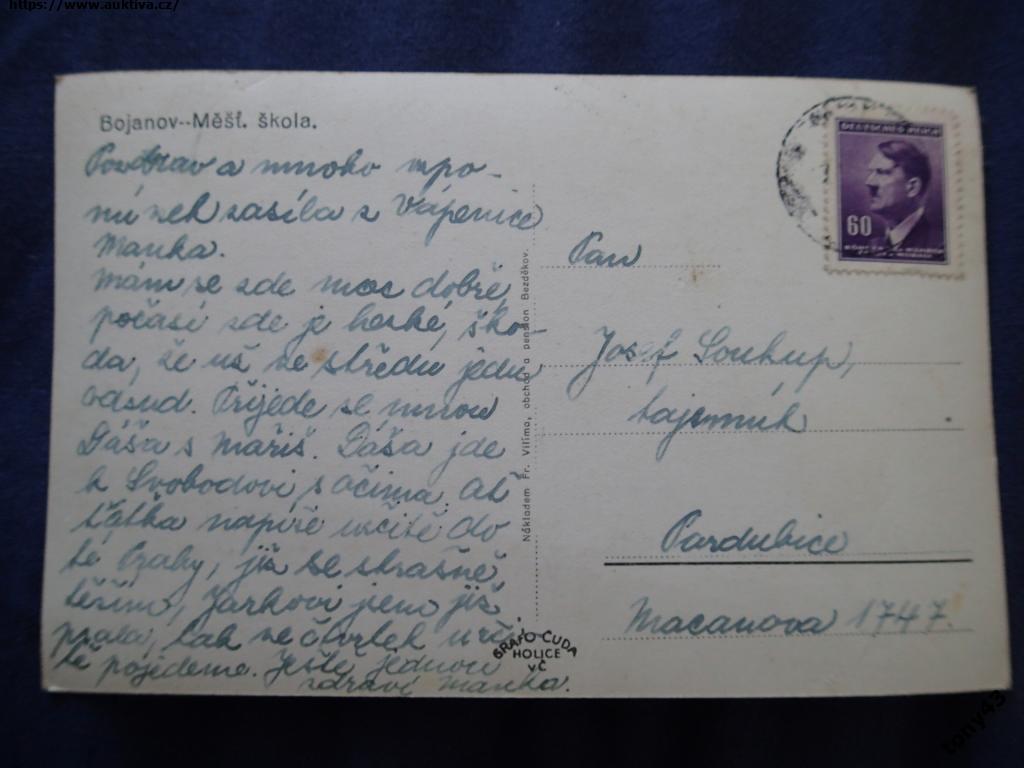 https://www.auktiva.cz/
Bojanov--Měšť. škola.
Pozdrav a mnoho vzpo-
mínek zasílá z Vápenice
Manka.
Mám se zde moc dobře,
počasí zde je hezké, ško-
da, že už ve středu jedu
odsud. Přijede se mnou
Dáša s Mařiš. Dáša jde
k Svobodovi s očima. Ať
táťka napíše určitě do
té Prahy, již se strašně
těším, Jarkovi jsem již
psala, tak ve čtvrtek urči
tě pojedeme. Ještě jednou
zdraví Manka.
Nákladem Fr. Vitíma, obchod a pension Bezděkov.
GRAFO ČUDA
HOLICE
v Č
DEUTSCHES REICH
60
BÖHMEN UND MÄHREN
Pan
Josef Soukup,
tajemník
Pardubice
Macanova 1747.
tony43